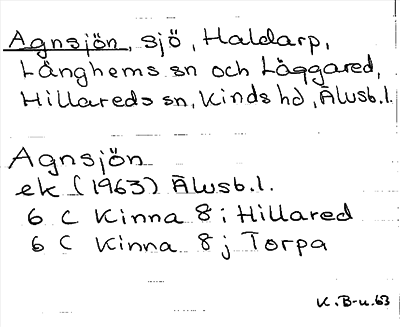 Agnsjön, sjö, Haldarp,
Länghems sn och Läggared,
Hillareds sn, Kinds hd, Älvsb.l.
Agnsjön
ek (1963) Älvsb.l.
6 C Kinna 8 i Hillared
6 C Kinna 8 j Torpa
K.B-u.63